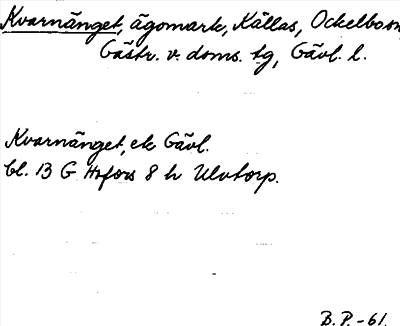 Kvarnänget, ägomark, Källas, Ockelbo sn
Gästr. v. doms. tg, Gävl. l.
Kvarnänget, ek Gävl.
bl. 13 G Hofors 8 h Ulvtorp.
B.P.-61.